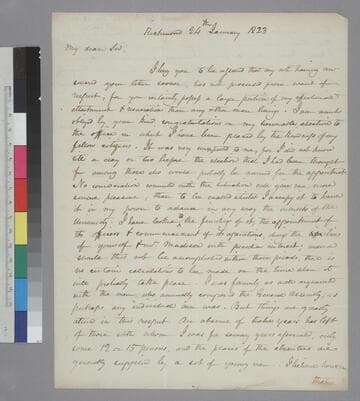 Richmond 24th January 1823
My dear Sir.
I beg you to be assured that my not having answered your letter sooner, has not proceeded from want of
respect; for you certainly possess a larger portion of my affectionate
attachment & veneration than any other man living. I am much
obliged by your kind congratulations on my honorable election to
the office in which I have been placed by the kindness of my
fellow citizens. It was very unexpected to me, for I did not know
till a day or two before the election that I had been thought
of among those who would probably be named for the appointment.
No consideration connected with the situation will give me more
sincere pleasure than to be enabled whilst I occupy it to have
it in my power to advance in any way the interests of the
University. I have looked to the finishing of it, the appointment of
its officers & commencement of its operations, during the lives
of yourself & Mr. Madison with peculiar interest, and
should that not be accomplished within those periods there is
no certain calculation to be made on the time when it
will probably take place. I was formerly as well acquainted
with the men who annually composed the General Assembly, as
perhaps any individual ever was. But things are greatly
altered in this respect. An absence of twelve years has left
of those with whom I was for many years associated, only
some 12 or 15 persons, and the places of the absentees are
generally supplied by a set of young men. I believe however